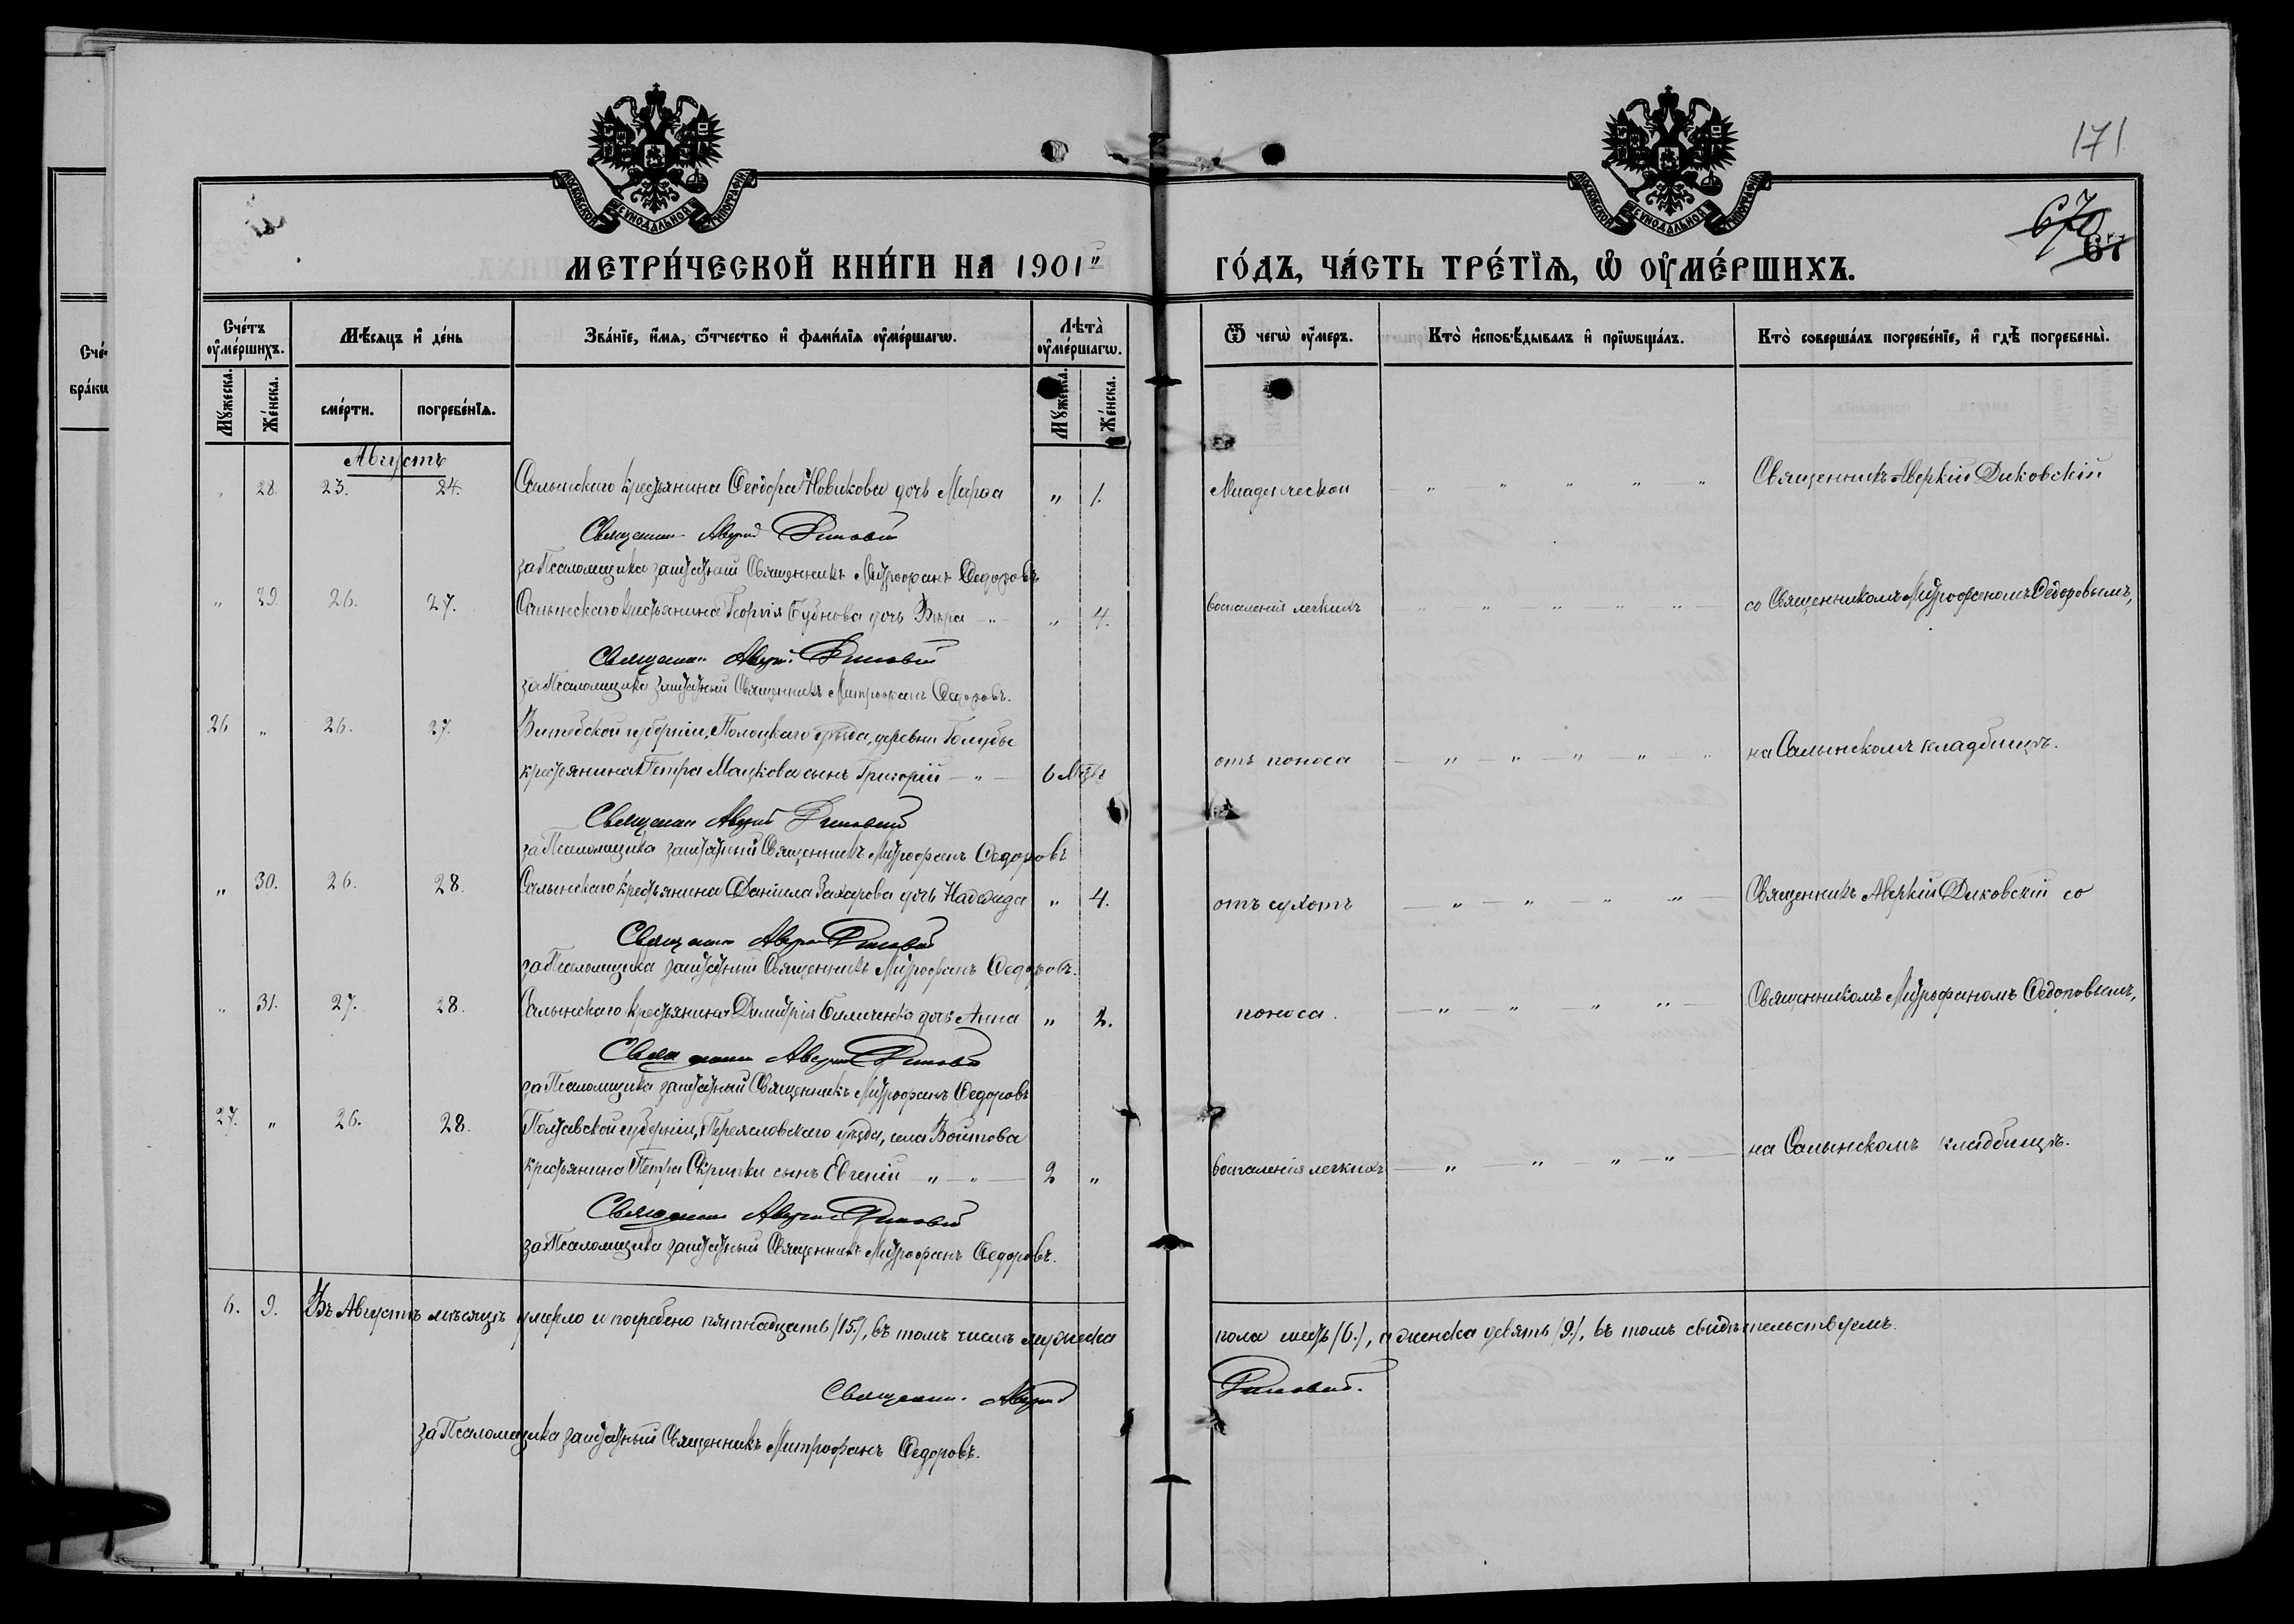 171
670
67
МОСКОВСКОЙ СѴНОДАЛЬНОЙ ТИПОГРАФІИ
МОСКОВСКОЙ СѴНОДАЛЬНОЙ ТИПОГРАФІИ
МЕТРИ́ЧЕСКОЙ КНИ́ГИ НА 1901" ГО́ДЪ, ЧА́СТЬ ТРЕ́ТЇѦ, Ѡ҆ ОУ҆МЕ́РШИХЪ.
Сче́тъ оу҆ме́ршихъ.
Мѣ́сѧцъ и҆ де́нь
Зва́нїе, и҆́мѧ, ѻ҆́тчество и҆ фами́лїѧ оу҆ме́ршагѡ.
Лѣ́та оу҆ме́ршагѡ.
Ѿ чегѡ̀ оу҆́меръ.
Кто̀ и҆сповѣ́дывалъ и҆ прїѡбща́лъ.
Кто̀ соверша́лъ погребе́нїе, и҆ гдѣ̀ погребены̀.
Мꙋ́жеска.
Же́нска.
сме́рти.
погребе́нїѧ.
Мꙋ́жеска.
Же́нска.
Августъ
" 28. 23. 24. Салынскаго крестьянина Ѳеодора Новикова дочь Марѳа " 1. Младенческой " " " " " Священникъ Аверкій Диковскій
Священникъ Аверкій Диковскій
за Псаломщика заштатный Священникъ Митрофанъ Ѳедоровъ
" 29. 26. 27. Салынскаго крестьянина Георгія Бубнова дочь Вѣра " " 4. воспаленія легкихъ " " " " " со Священникомъ Митрофаномъ Ѳедоровымъ,
Священникъ Аверкій Диковскій
за Псаломщика заштатный Священникъ Митрофанъ Ѳедоровъ.
26 " 26. 27. Витебской губерніи, Полоцкаго уѣзда, деревни Голубы
крестьянина Петра Мацкова сынъ Григорій " 6 Мѣс. отъ поноса " " " " " на Салынскомъ кладбищѣ.
Священникъ Аверкій Диковскій
за Псаломщика заштатный Священникъ Митрофанъ Ѳедоровъ
" 30. 26. 28. Салынскаго крестьянина Даніила Захарова дочь Надежда " 4. отъ сухотъ " " " " Священникъ Аверкій Диковскій со
Священникъ Аверкій Диковскій
за Псаломщика заштатный Священникъ Митрофанъ Ѳедоровъ.
" 31. 27. 28. Салынскаго крестьянина Димитрія дочь Анна " 2. поноса. " " " " Священникомъ Митрофаномъ Ѳедоровымъ,
Священникъ Аверкій Диковскій
за Псаломщика заштатный Священникъ Митрофанъ Ѳедоровъ
27. " 26. 28. Полтавской губерніи, Переяславскаго уѣзда, села Войтова
крестьянина Петра Скрипки сынъ Евгеній " " 2 " воспаленія легкихъ " " " " на Салынскомъ кладбищѣ.
Священникъ Аверкій Диковскій
за Псаломщика заштатный Священникъ Митрофанъ Ѳедоровъ.
6. 9. Въ Августѣ мѣсяцѣ умерло и погребено пятнадцать /15./, въ томъ числѣ мужеска пола шесть /6./, а женска девять /9./, въ томъ свидѣтельствуемъ.
Священникъ Аверкій Диковскій.
за Псаломщика заштатный Священникъ Митрофанъ Ѳедоровъ.
Сче́
бра́ки